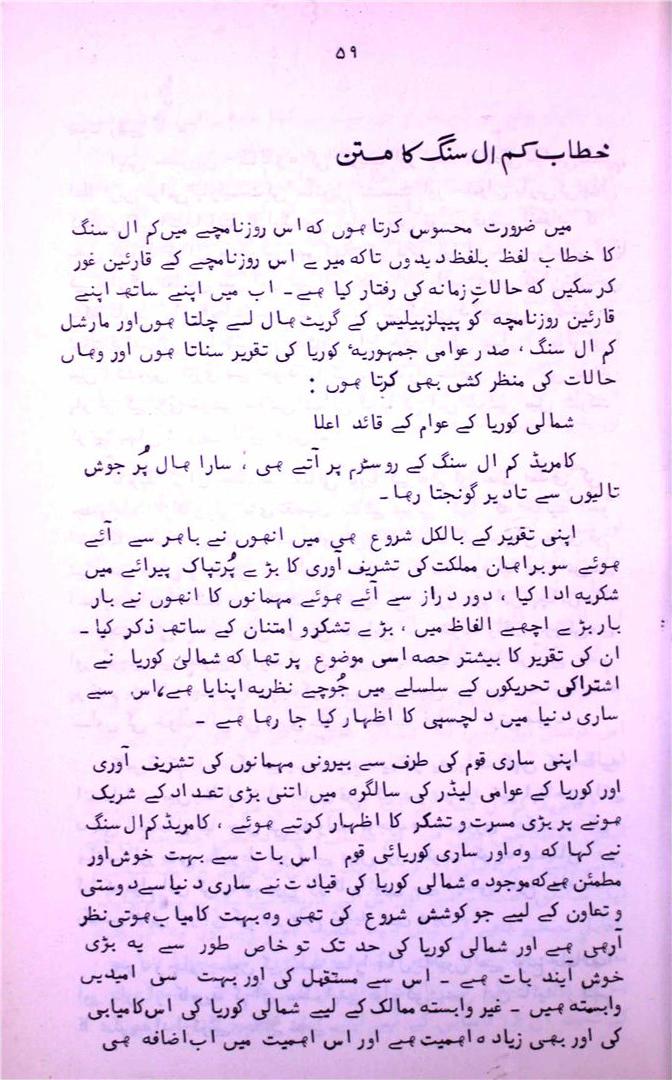 ۵۹
خطاب کم ال سنگ کا متن
میں ضرورت محسوس کرتا ہوں کہ اس روزنامچے میں کم ال سنگ
کا خطاب لفظ بلفظ دیدوں تاکہ میرے اس روزنامچے کے قارئین غور
کرسکیں کہ حالاتِ زمانہ کی رفتار کیا ہے۔ اب میں اپنے ساتھ اپنے
قارئین روزنامچہ کو پیپلزپیلیس کے گریٹ ہال لیے چلتا ہوں اور مارشل
کم ال سنگ، صدر عوامی جمہوریہٴ کوریا کی تقریر سناتا ہوں اور وہاں
حالات کی منظر کشی بھی کرتا ہوں :
شمالی کوریا کے عوام کے قائد اعلا
کامریڈ کم ال سنگ کے روسٹرم پر آتے ہی ، سارا ہال پُر جوش
تالیوں سے تادیر گونجتا رہا۔
اپنی تقریر کے بالکل شروع ہی میں انھوں نے باہر سے آئے
ہوئے سوبراہان مملکت کی تشریف آوری کا بڑے پُرتپاک پیرائے میں
شکریہ ادا کیا ، دور دراز سے آئے ہوئے مہمانوں کا انھوں نے بار
بار بڑے اچھے الفاظ میں ، بڑے تشکرو امتنان کے ساتھ ذکر کیا۔
ان کی تقریر کا بیشتر حصہ اسی موضوع پر تھا کہ شمالئ کوریا نے
اشتراکی تحریکوں کے سلسلے میں جُوچے نظریہ اپنایا ہے،اس سے
ساری دنیا میں دلچسپی کا اظہار کیا جا رہا ہے ۔
اپنی ساری قوم کی طرف سے بیرونی مہمانوں کی تشریف آوری
اور کوریا کے عوامی لیڈر کی سالگرہ میں اتنی بڑی تعداد کے شریک
ہونے پر بڑی مسرت و تشکر کا اظہار کرتے ہوئے ، کامریڈ کم ال سنگ
نے کہا کہ وہ اور ساری کوریائی قوم اس بات سے بہت خوش اور
مطمئن ہے کہ موجودہ شمالی کوریا کی قیادت نے ساری دنیا سے دوستی
و تعاون کے لیے جو کوشش شروع کی تھی وہ بہت کامیاب ہوتی نظر
آرہی ہے اور شمالی کوریا کی حد تک تو خاص طور سے یہ بڑی
خوش آیند بات ہے ۔ اس سے مستقبل کی اور بہت سی امیدیں
وابستہ ہیں ۔ غیر وابستہ ممالک کے لیے شمالی کوریا کی اس کامیابی
کی اور بھی زیادہ اہمیت ہے اور اس اہمیت میں اب اضافہ ہی